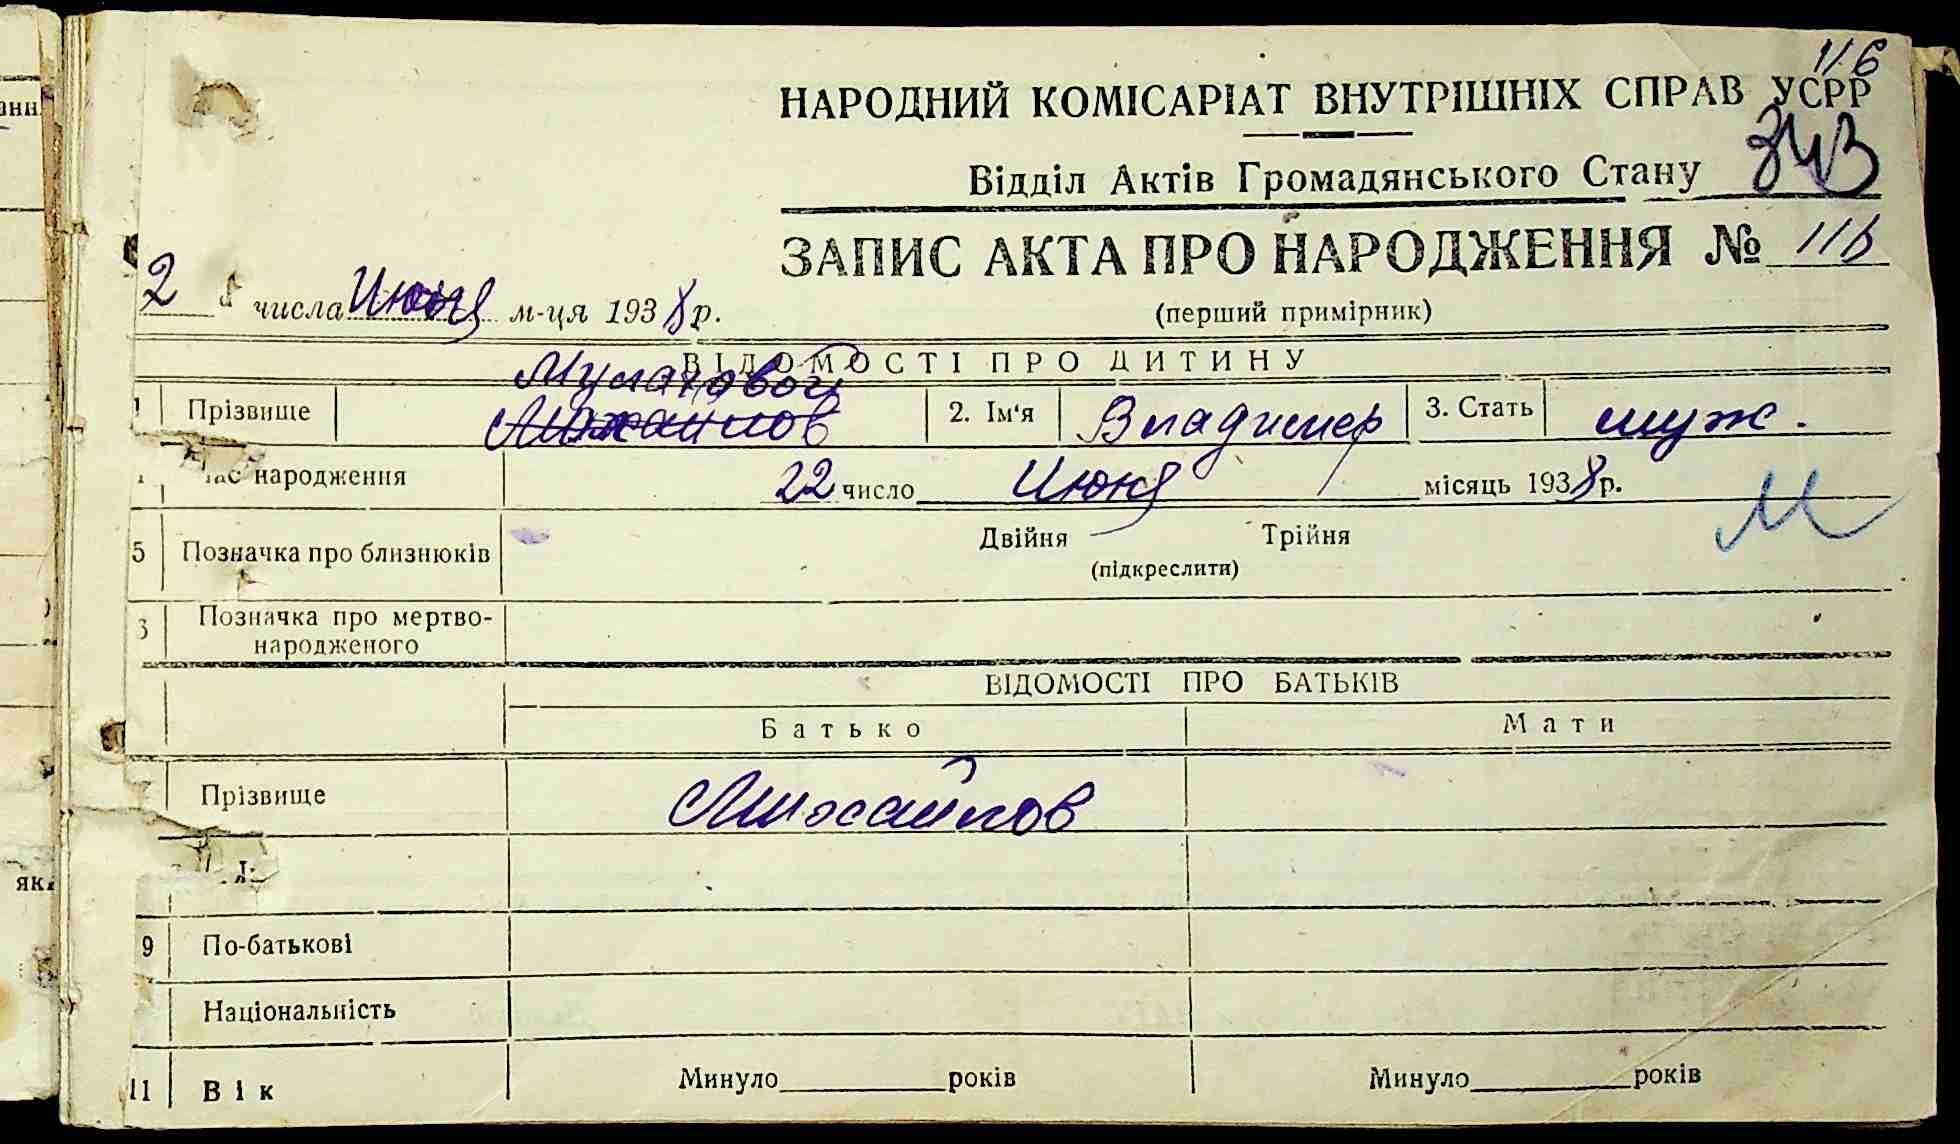 116
НАРОДНИЙ КОМІСАРІАТ ВНУТРІШНІХ СПРАВ УСРР
Відділ Актів Громадянського Стану
ЗАПИС АКТА ПРО НАРОДЖЕННЯ № 116
2 числа Июня м-ця 1938 р.
(перший примірник)
ВІДОМОСТІ ПРО ДИТИНУ
Прізвище Михайлов 2. Ім'я Владимер 3. Стать муж.
час народження 22 число Июня місяць 1938 р.
М
5 Позначка про близнюків Двійня Трійня
(підкреслити)
Позначка про мертво-
народженого
ВІДОМОСТІ ПРО БАТЬКІВ
Батько Мати
Прізвище Михайлов
9 По-батькові
Національність
11 Вік Минуло роківМИнуло років